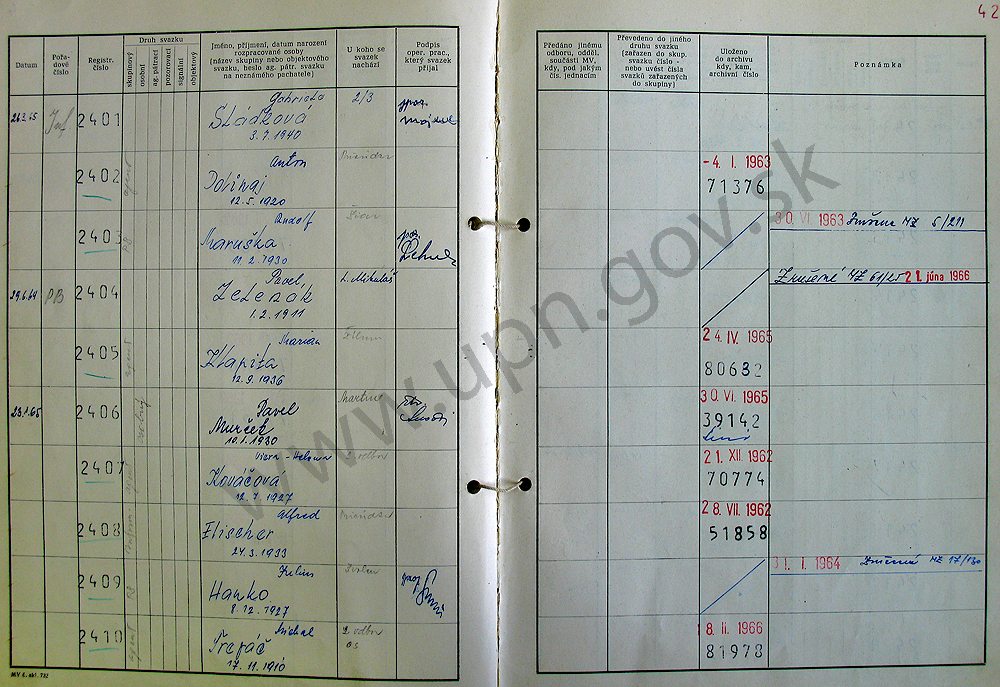 42
Datum
Pořa-
dové
číslo
Registr.
číslo
Druh svazku
skupinový
osobní
ag. pátrací
pozorovací
signální
objektový
Jméno, příjmení, datum narození
rozpracované osoby
(název skupiny nebo objektového
svazku, heslo ag. pátr. svazku
na neznámého pachatele)
U koho se
svazek
nachází
Podpis
oper. prac.,
který svazek
přijal
Předáno jinému
odboru, odděl.
součásti MV,
kdy, pod jakým
čís. jednacím
Převedeno do jiného
druhu svazku
(zařazen do skup.
svazku číslo -
nebo uvést čísla
svazků zařazených
do skupiny)
Uloženo
do archivu
kdy, kam,
archivní číslo
Poznámka
Inf
2401
Gabriela
Sládková
3. 7. 1940
2/3
2402
agent
Anton
Dolinaj
12. 5. 1920
-4. I. 1963
71376
2403
PB
Rudolf
Maruška
11. 2. 1930
30. VI. 1963
29.6.64
PB
2404
Pavel
Zelenák
1. 2. 1911
L. Mikuláš
Zrušené
21. júna 1966
2405
agent
Marian
Zlapita
12. 9. 1936
24. IV. 1965
80632
23.1.65
2406
Pavel
Murček
10. 1. 1930
Martin
30. VI. 1965
39142
2407
agent
Viera - Helena
Kováčová
12. 7. 1927
odbor
21. XII. 1962
70774
2408
inform
Alfred
Elischer
24. 3. 1933
28. VII. 1962
51858
2409
PB
Július
Hanko
8. 12. 1927
Zvolen
31. I. 1964
2410
agent
Michal
Trepáč
17. 11. 1910
2. odbor
18. II. 1966
81978
www.upn.gov.sk